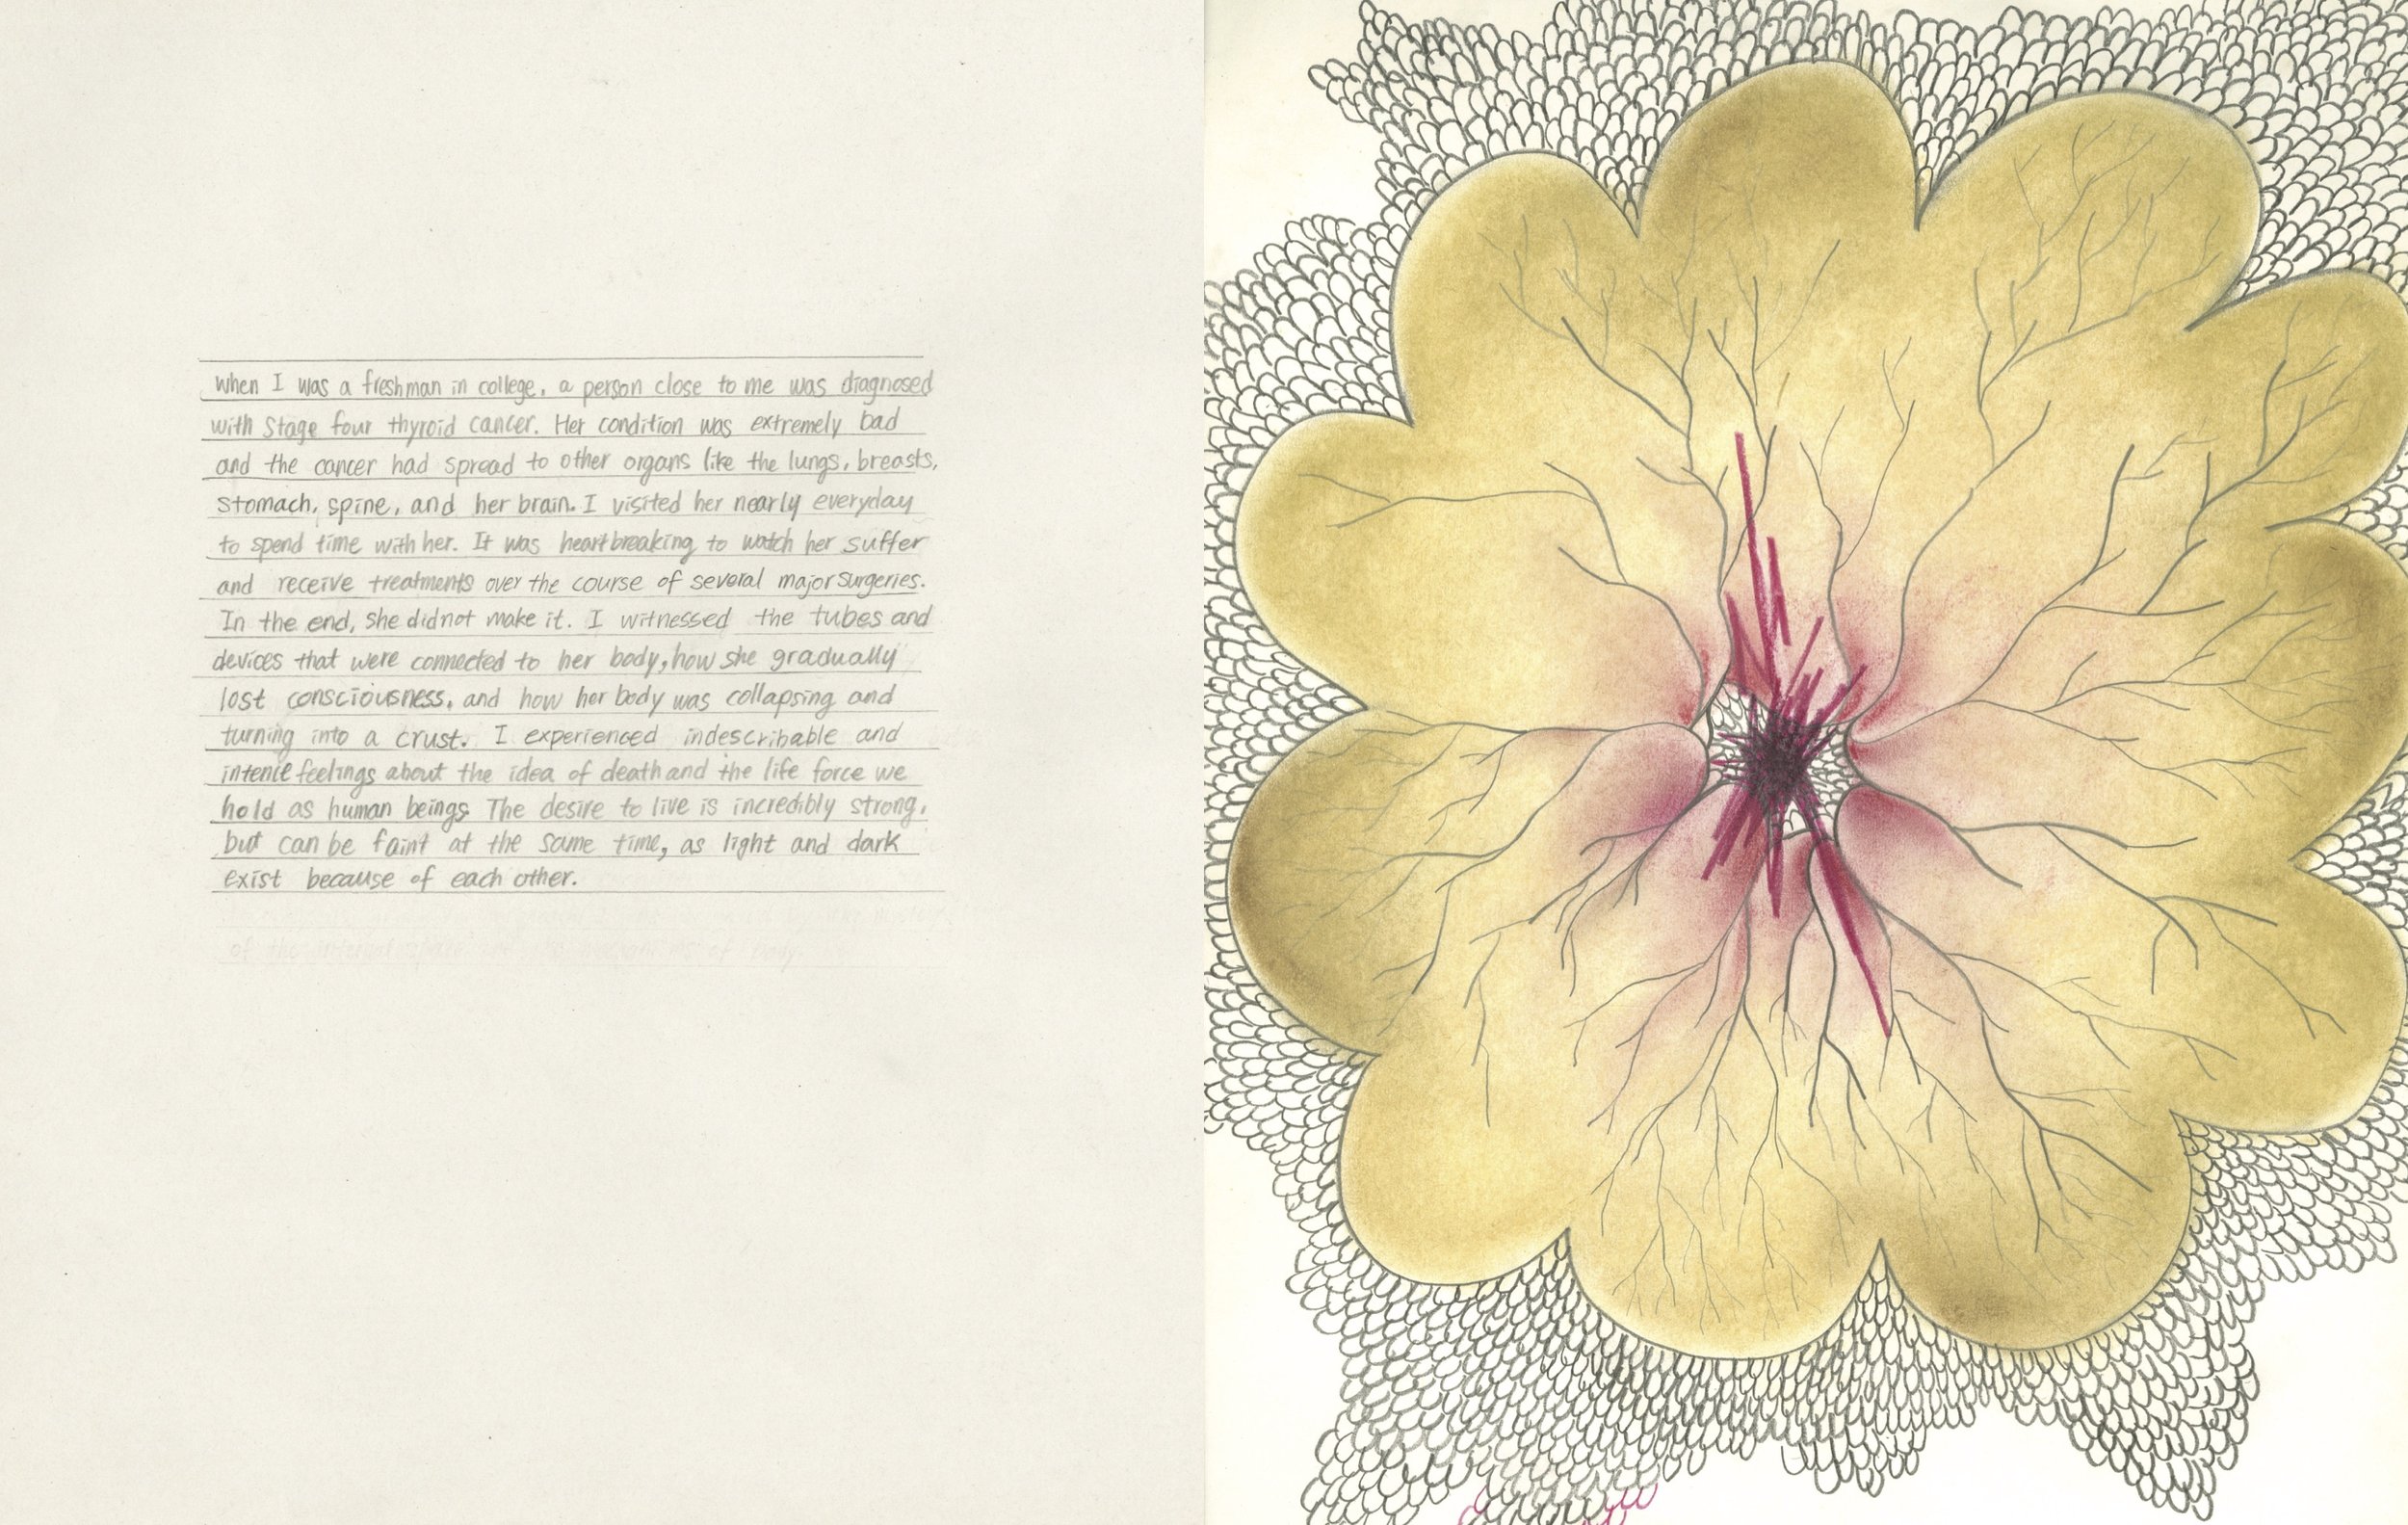 when I was a freshman in college, a person close to me was diagnosed
with Stage four thyroid cancer. Her condition was extremely bad
and the cancer had spread to other organs like the lungs, breasts,
stomach, spine, and her brain. I visited her nearly everyday
to spend time with her. It was heartbreaking to watch her suffer
and receive treatments over the course of several major surgeries.
In the end, she did not make it. I witnessed the tubes and
devices that were connected to her body, how she gradually
lost consciousness, and how her body was collapsing and
turning into a crust. I experienced indescribable and
intence feelings about the idea of death and the life force we
hold as human beings. The desire to live is incredibly strong,
but can be faint at the same time, as light and dark
exist because of each other.
of the internal of many